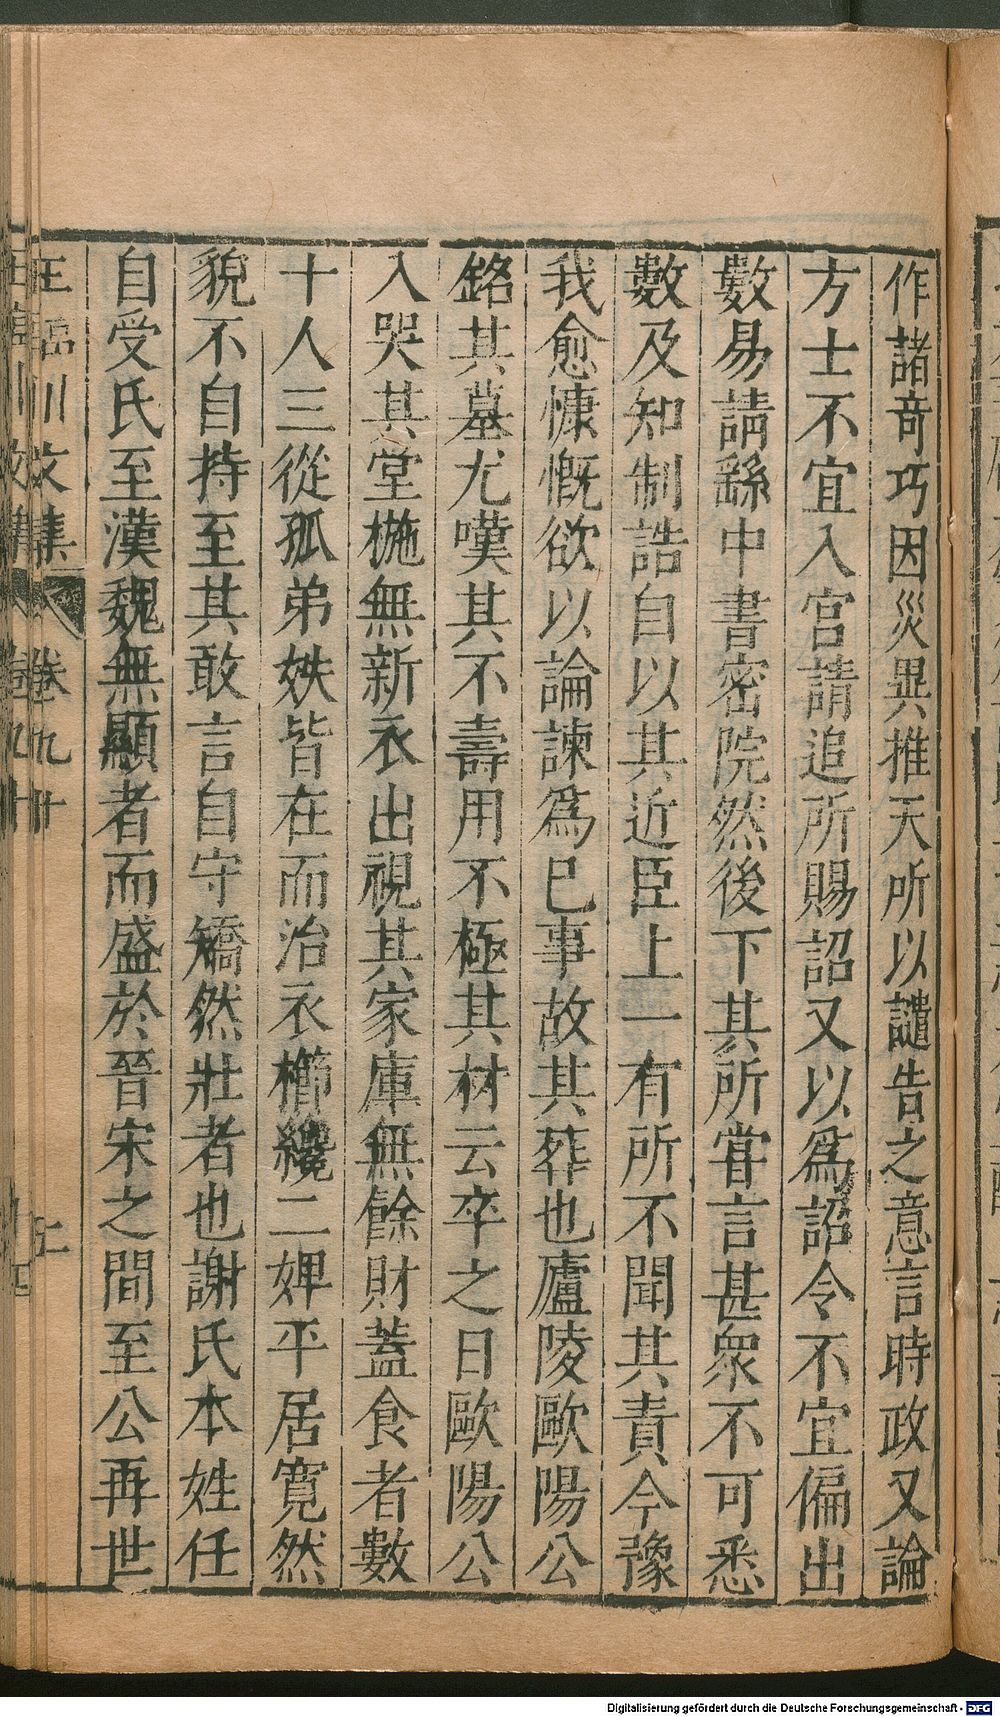 作諸奇巧因災異推天所以譴告之意言時政又論
方士不宜入宮請追所賜詔又以爲詔令不宜偏出
數易請繇中書密院然後下其所甞言甚衆不可悉
數及知制誥自以其近臣上一有所不聞其責今豫
我愈慷慨欲以論諫爲巳事故其葬也廬陵歐陽公
銘其墓尤嘆其不壽用不極其材云卒之日歐陽公
入哭其堂椸無新衣出視其家庫無餘財蓋食者數
十人三從孤弟姪皆在而治衣櫛纔二婢平居寛然
貌不自持至其敢言自守矯然壯者也謝氏本姓任
自受氏至漢魏無顯者而盛於晉宋之間至公再世
王臨川文集 卷九十
Digitalisierung gefördert durch die Deutsche Forschungsgemeinschaft - DFG